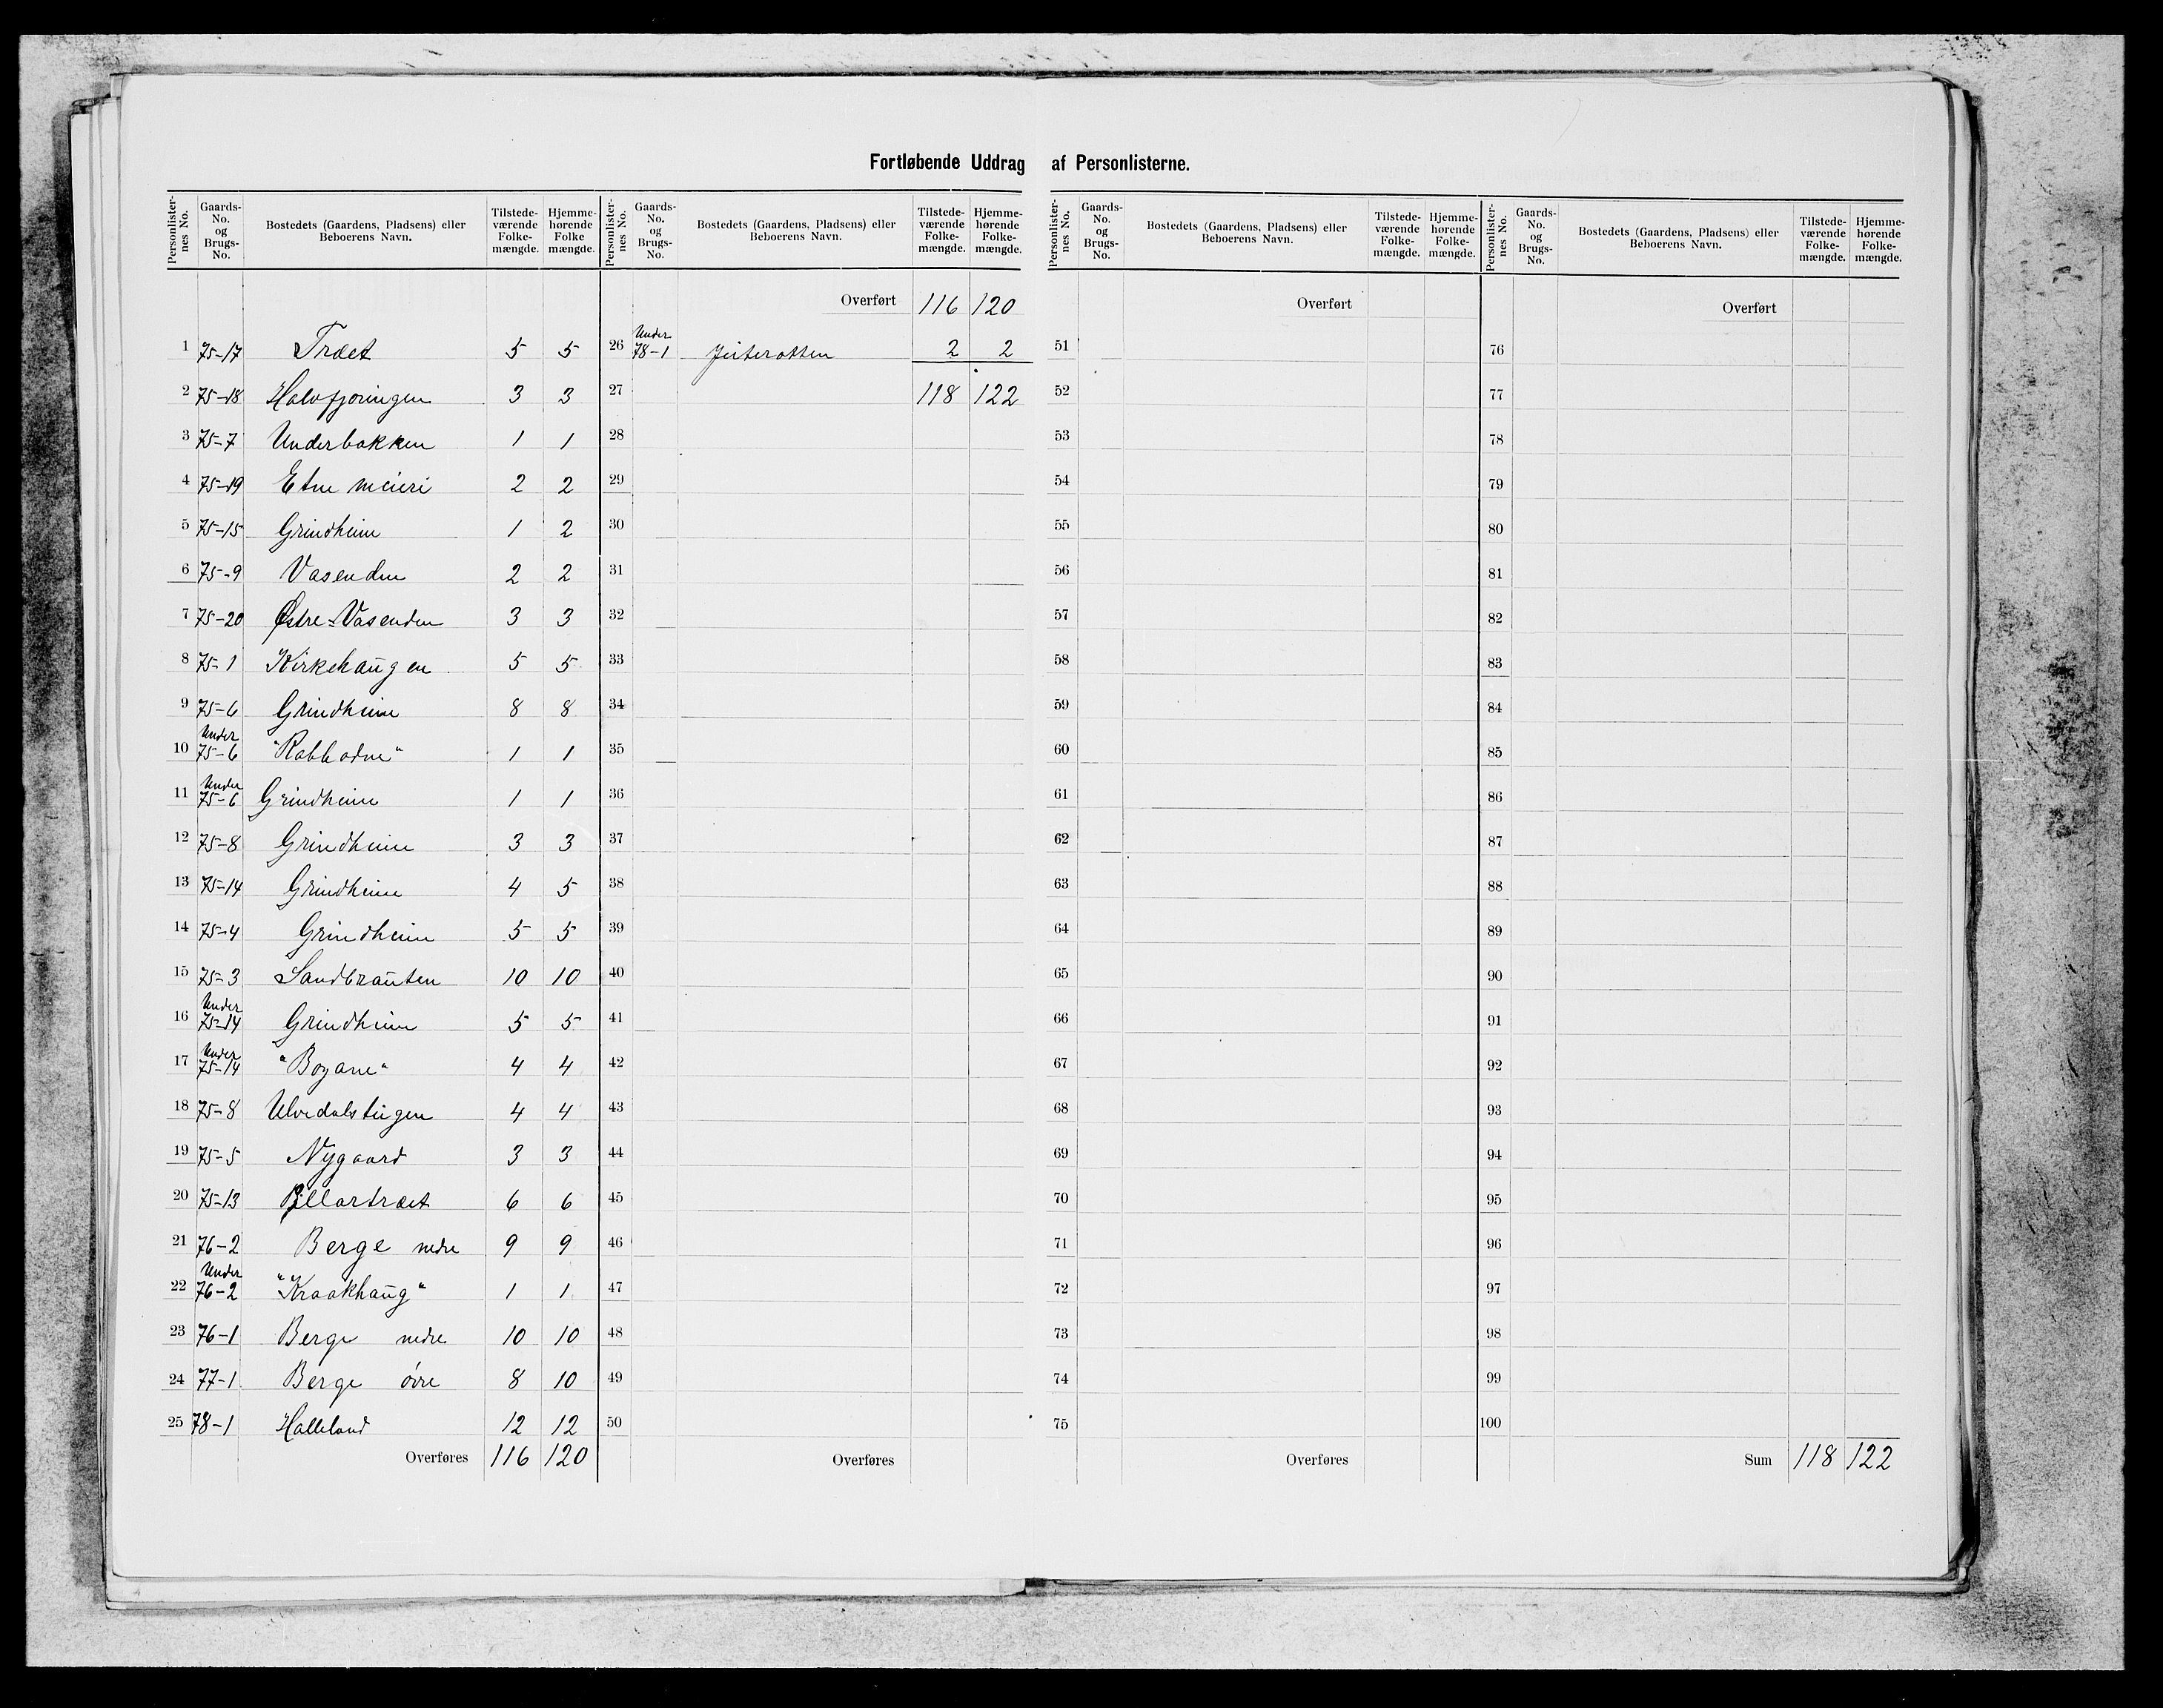 Fortløbende Uddrag af Personlisterne.
Personlister-nes No. | Gaards-No. og Brugs-No. | Bostedets (Gaardens, Pladsens) eller Beboerens Navn. | Tilstede-værende Folke-mængde. | Hjemme-hørende Folke mængde.
1 75-17 Træt 5 5
2 75-18 Halvfjoringen 3 3
3 75-7 Underbakken 1 1
4 75-19 Etne meieri 2 2
5 75-15 Grindheim 1 2
6 75-9 Vasenden 2 2
7 75-20 Østre-Vasenden 3 3
8 75-1 Kirkehaugen 5 5
9 75-6 Grindheim 8 8
10 Under 75-6 "Rabbadne" 1 1
11 Under 75-6 Grindheim 1 1
12 75-8 Grindheim 3 3
13 75-14 Grindheim 4 5
14 75-4 Grindheim 5 5
15 75-3 Sandbrauten 10 10
16 Under 75-14 Grindheim 5 5
17 Under 75-14 "Boyane" 4 4
18 75-8 4 4
19 75-5 Nygaard 3 3
20 75-13 6 6
21 76-2 Berge nedre 9 9
22 Under 76-2 "Kraakhaug" 1 1
23 76-1 Berge nedre 10 10
24 77-1 Berge óvre 8 10
25 78-1 Halleland 12 12
Overføres 116 120
Personlister-nes No. | Gaards-No. og Brugs-No. | Bostedets (Gaardens, Pladsens) eller Beboerens Navn. | Tilstede-værende Folke-mængde. | Hjemme-hørende Folke-mængde.
Overført 116 120
26 Under 78-1 2 2
27 118 122
28
29
30
31
32
33
34
35
36
37
38
39
40
41
42
43
44
45
46
47
48
49
50
Overføres
Personlister-nes No. | Gaards-No. og Brugs-No. | Bostedets (Gaardens, Pladsens) eller Beboerens Navn. | Tilstede-værende Folke-mængde. | Hjemme-hørende Folke-mængde.
Overført
51
52
53
54
55
56
57
58
59
60
61
62
63
64
65
66
67
68
69
70
71
72
73
74
75
Overføres
Personlister-nes No. | Gaards-No. og Brugs-No. | Bostedets (Gaardens, Pladsens) eller Beboerens Navn. | Tilstede-værende Folke-mængde. | Hjemme-hørende Folke-mængde.
Overført
76
77
78
79
80
81
82
83
84
85
86
87
88
89
90
91
92
93
94
95
96
97
98
99
100
Sum 118 122